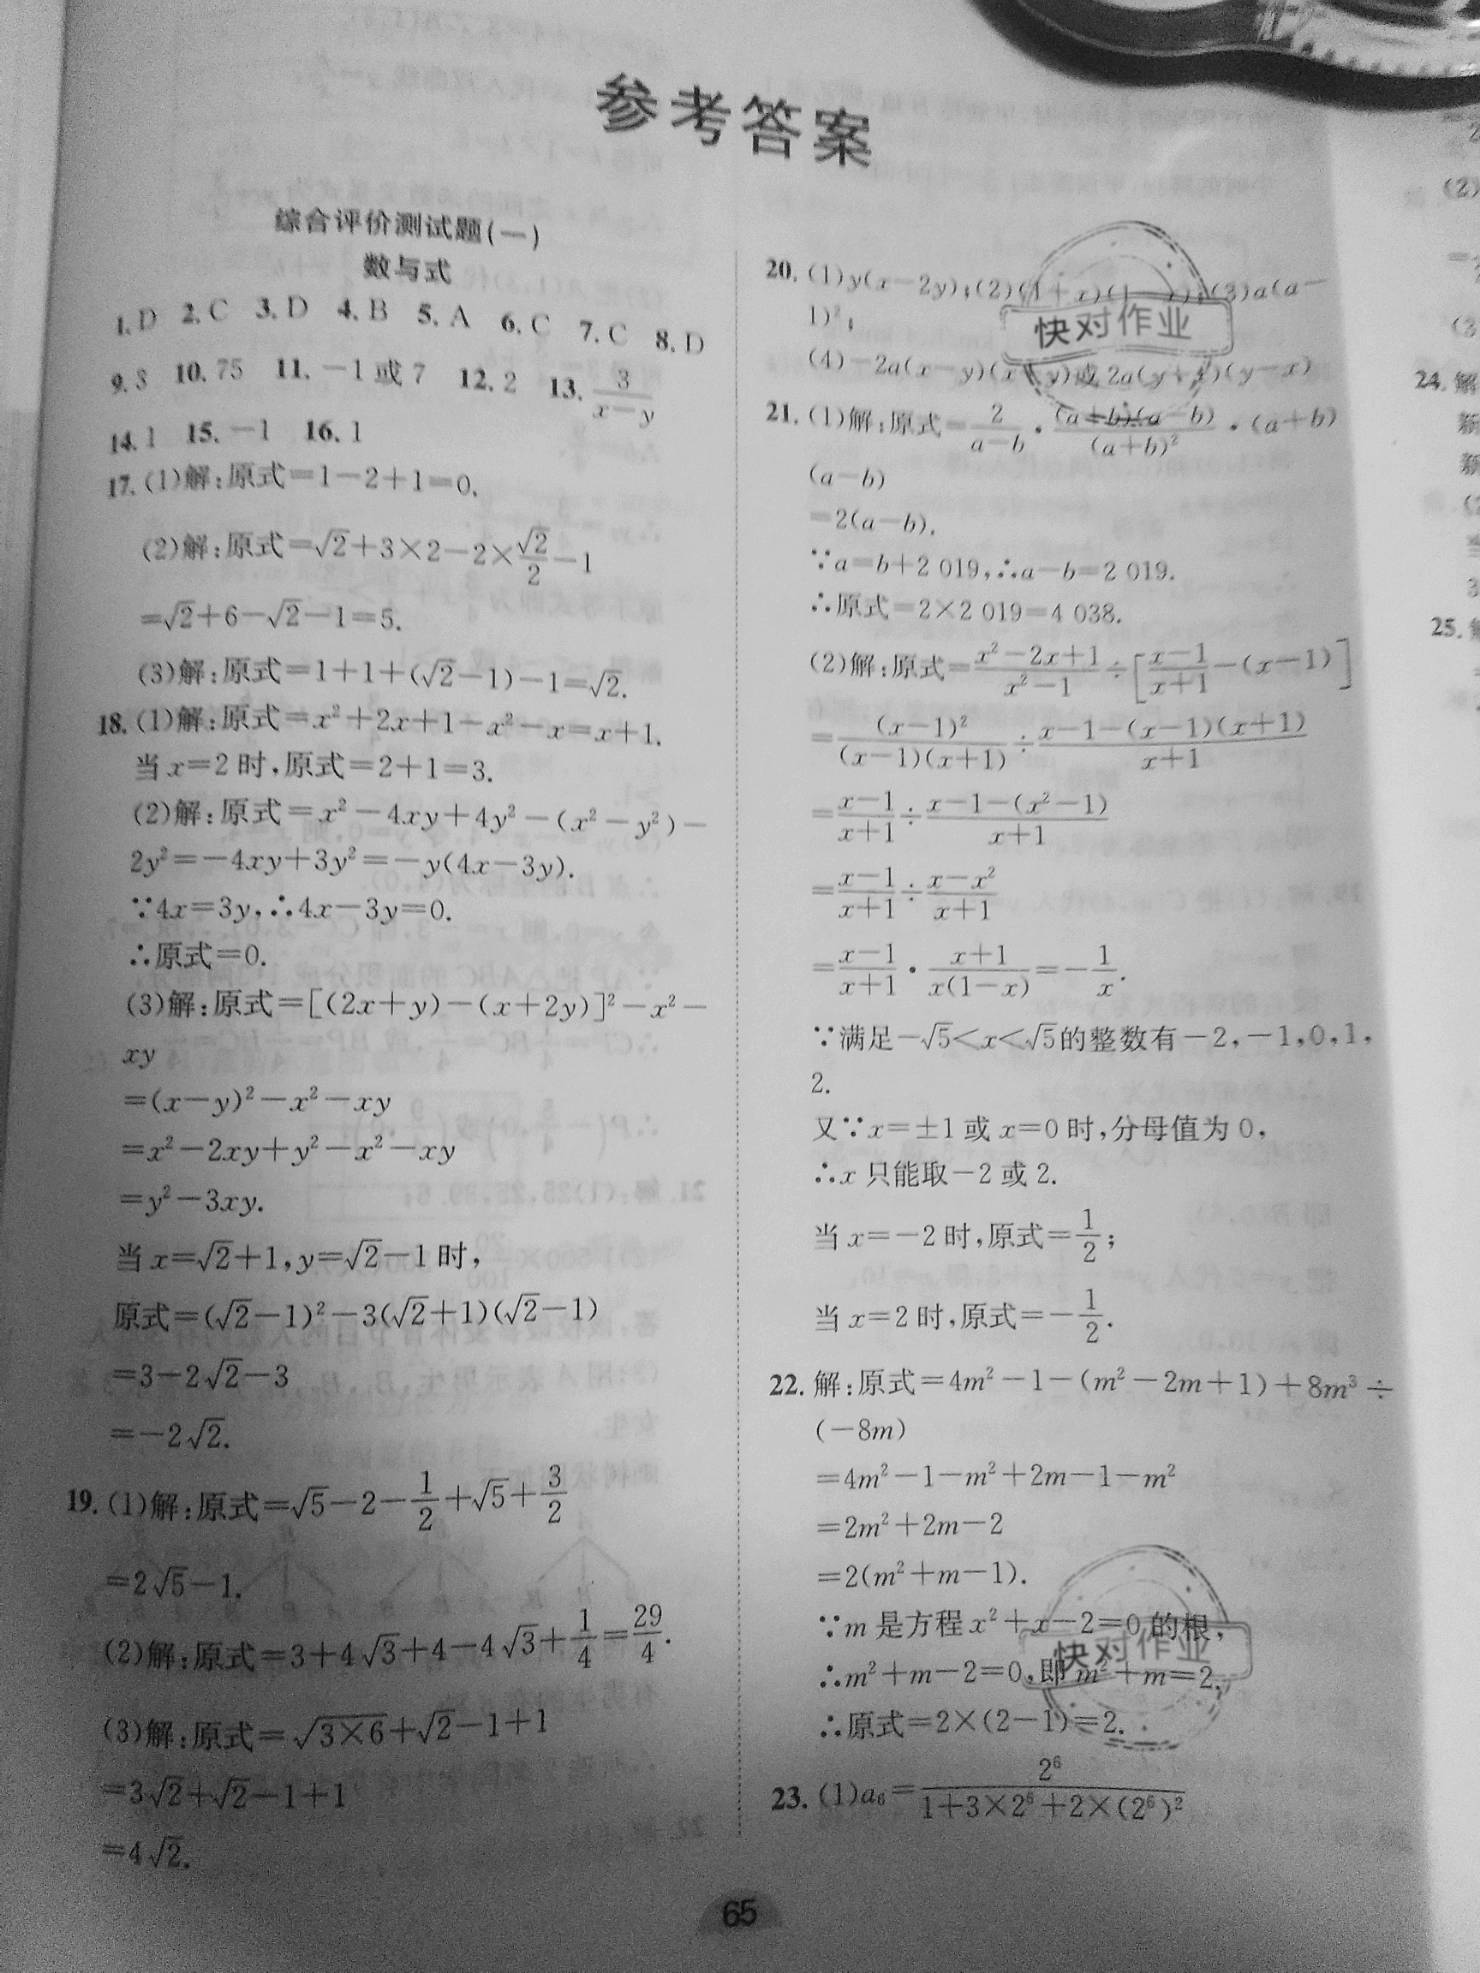 参考答案
综合评价测试题(一)
数与式
1. D 2. C 3. D 4. B 5. A 6. C 7. C 8. D
9. 8 10. 75 11. -1或7 12. 2 13. 3/(x-y)
14. 1 15. -1 16. 1
17. (1)解:原式=1-2+1=0.
(2)解:原式=√2+3×2-2×√2/2-1
=√2+6-√2-1=5.
(3)解:原式=1+1+(√2-1)-1=√2.
18. (1)解:原式=x²+2x+1-x²-x=x+1.
当x=2时,原式=2+1=3.
(2)解:原式=x²-4xy+4y²-(x²-y²)-
2y²=-4xy+3y²=-y(4x-3y).
∵4x=3y,∴4x-3y=0.
∴原式=0.
(3)解:原式=[(2x+y)-(x+2y)]²-x²-
xy
=(x-y)²-x²-xy
=x²-2xy+y²-x²-xy
=y²-3xy.
当x=√2+1,y=√2-1时,
原式=(√2-1)²-3(√2+1)(√2-1)
=3-2√2-3
=-2√2.
19. (1)解:原式=√5-2-1/2+√5+3/2
=2√5-1.
(2)解:原式=3+4√3+4-4√3+1/4=29/4.
(3)解:原式=√(3×6)+√2-1+1
=3√2+√2-1+1
=4√2.
20. (1)y(x-2y);(2)(1+x)(1-x);(3)a(a-
1)²;
(4)-2a(x-y)(x+y)或2a(y+x)(y-x)
快对作业
21. (1)解:原式=2/(a-b)·(a+b)(a-b)/(a+b)²·(a+b)
(a-b)
=2(a-b).
∵a=b+2 019,∴a-b=2 019.
∴原式=2×2 019=4 038.
(2)解:原式=(x²-2x+1)/(x²-1)÷[(x-1)/(x+1)-(x-1)]
=(x-1)²/((x-1)(x+1))÷(x-1-(x-1)(x+1))/(x+1)
=(x-1)/(x+1)÷(x-1-(x²-1))/(x+1)
=(x-1)/(x+1)÷(x-x²)/(x+1)
=(x-1)/(x+1)·(x+1)/(x(1-x))=-1/x.
∵满足-√5<x<√5的整数有-2,-1,0,1,
2.
又∵x=±1或x=0时,分母值为0,
∴x只能取-2或2.
当x=-2时,原式=1/2;
当x=2时,原式=-1/2.
22. 解:原式=4m²-1-(m²-2m+1)+8m³÷
(-8m)
=4m²-1-m²+2m-1-m²
=2m²+2m-2
=2(m²+m-1).
∵m是方程x²+x-2=0的根,
∴m²+m-2=0,即m²+m=2,
快对作业
∴原式=2×(2-1)=2.
23. (1)a₆=2⁶/(1+3×2⁶+2×(2⁶)²)
65
(2)
24. 解
新
新
25.